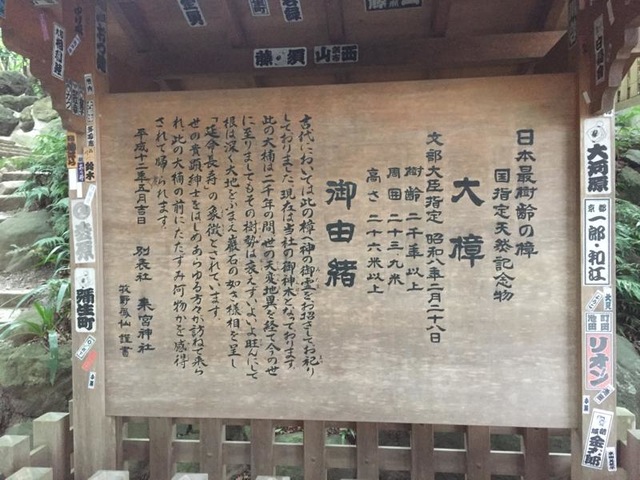 日本最樹齢の樟
国指定天然記念物
大樟
文部大臣指定 昭和八年二月二十八日
樹齢 二千年以上
周囲 二十三.九米
高さ 二十六米以上
御由緒
古代においては此の樟に神の御霊をお招きしてお祀り
しておりました 現在は当社の御神木となっております
此の大楠は二千年の間 世の天変地異を経て今の世
に至りましてもその樹勢は衰えず、いよいよ旺んにして
根は深く大地をふまえ巌石の如き様相を呈し
「延命長寿」の象徴とされています。
世の貴顕紳士をはじめあらゆる方々が訪ねて来ら
れ、此の大楠の前にたたずみ何物かを感得
されて帰られます。
平成十二年五月吉日
別表社 来宮神社
牧野 仙 謹書
西山須藤
鈴木
弥生町
京都 一郎・和江
町田 池田
リオン
金太郎